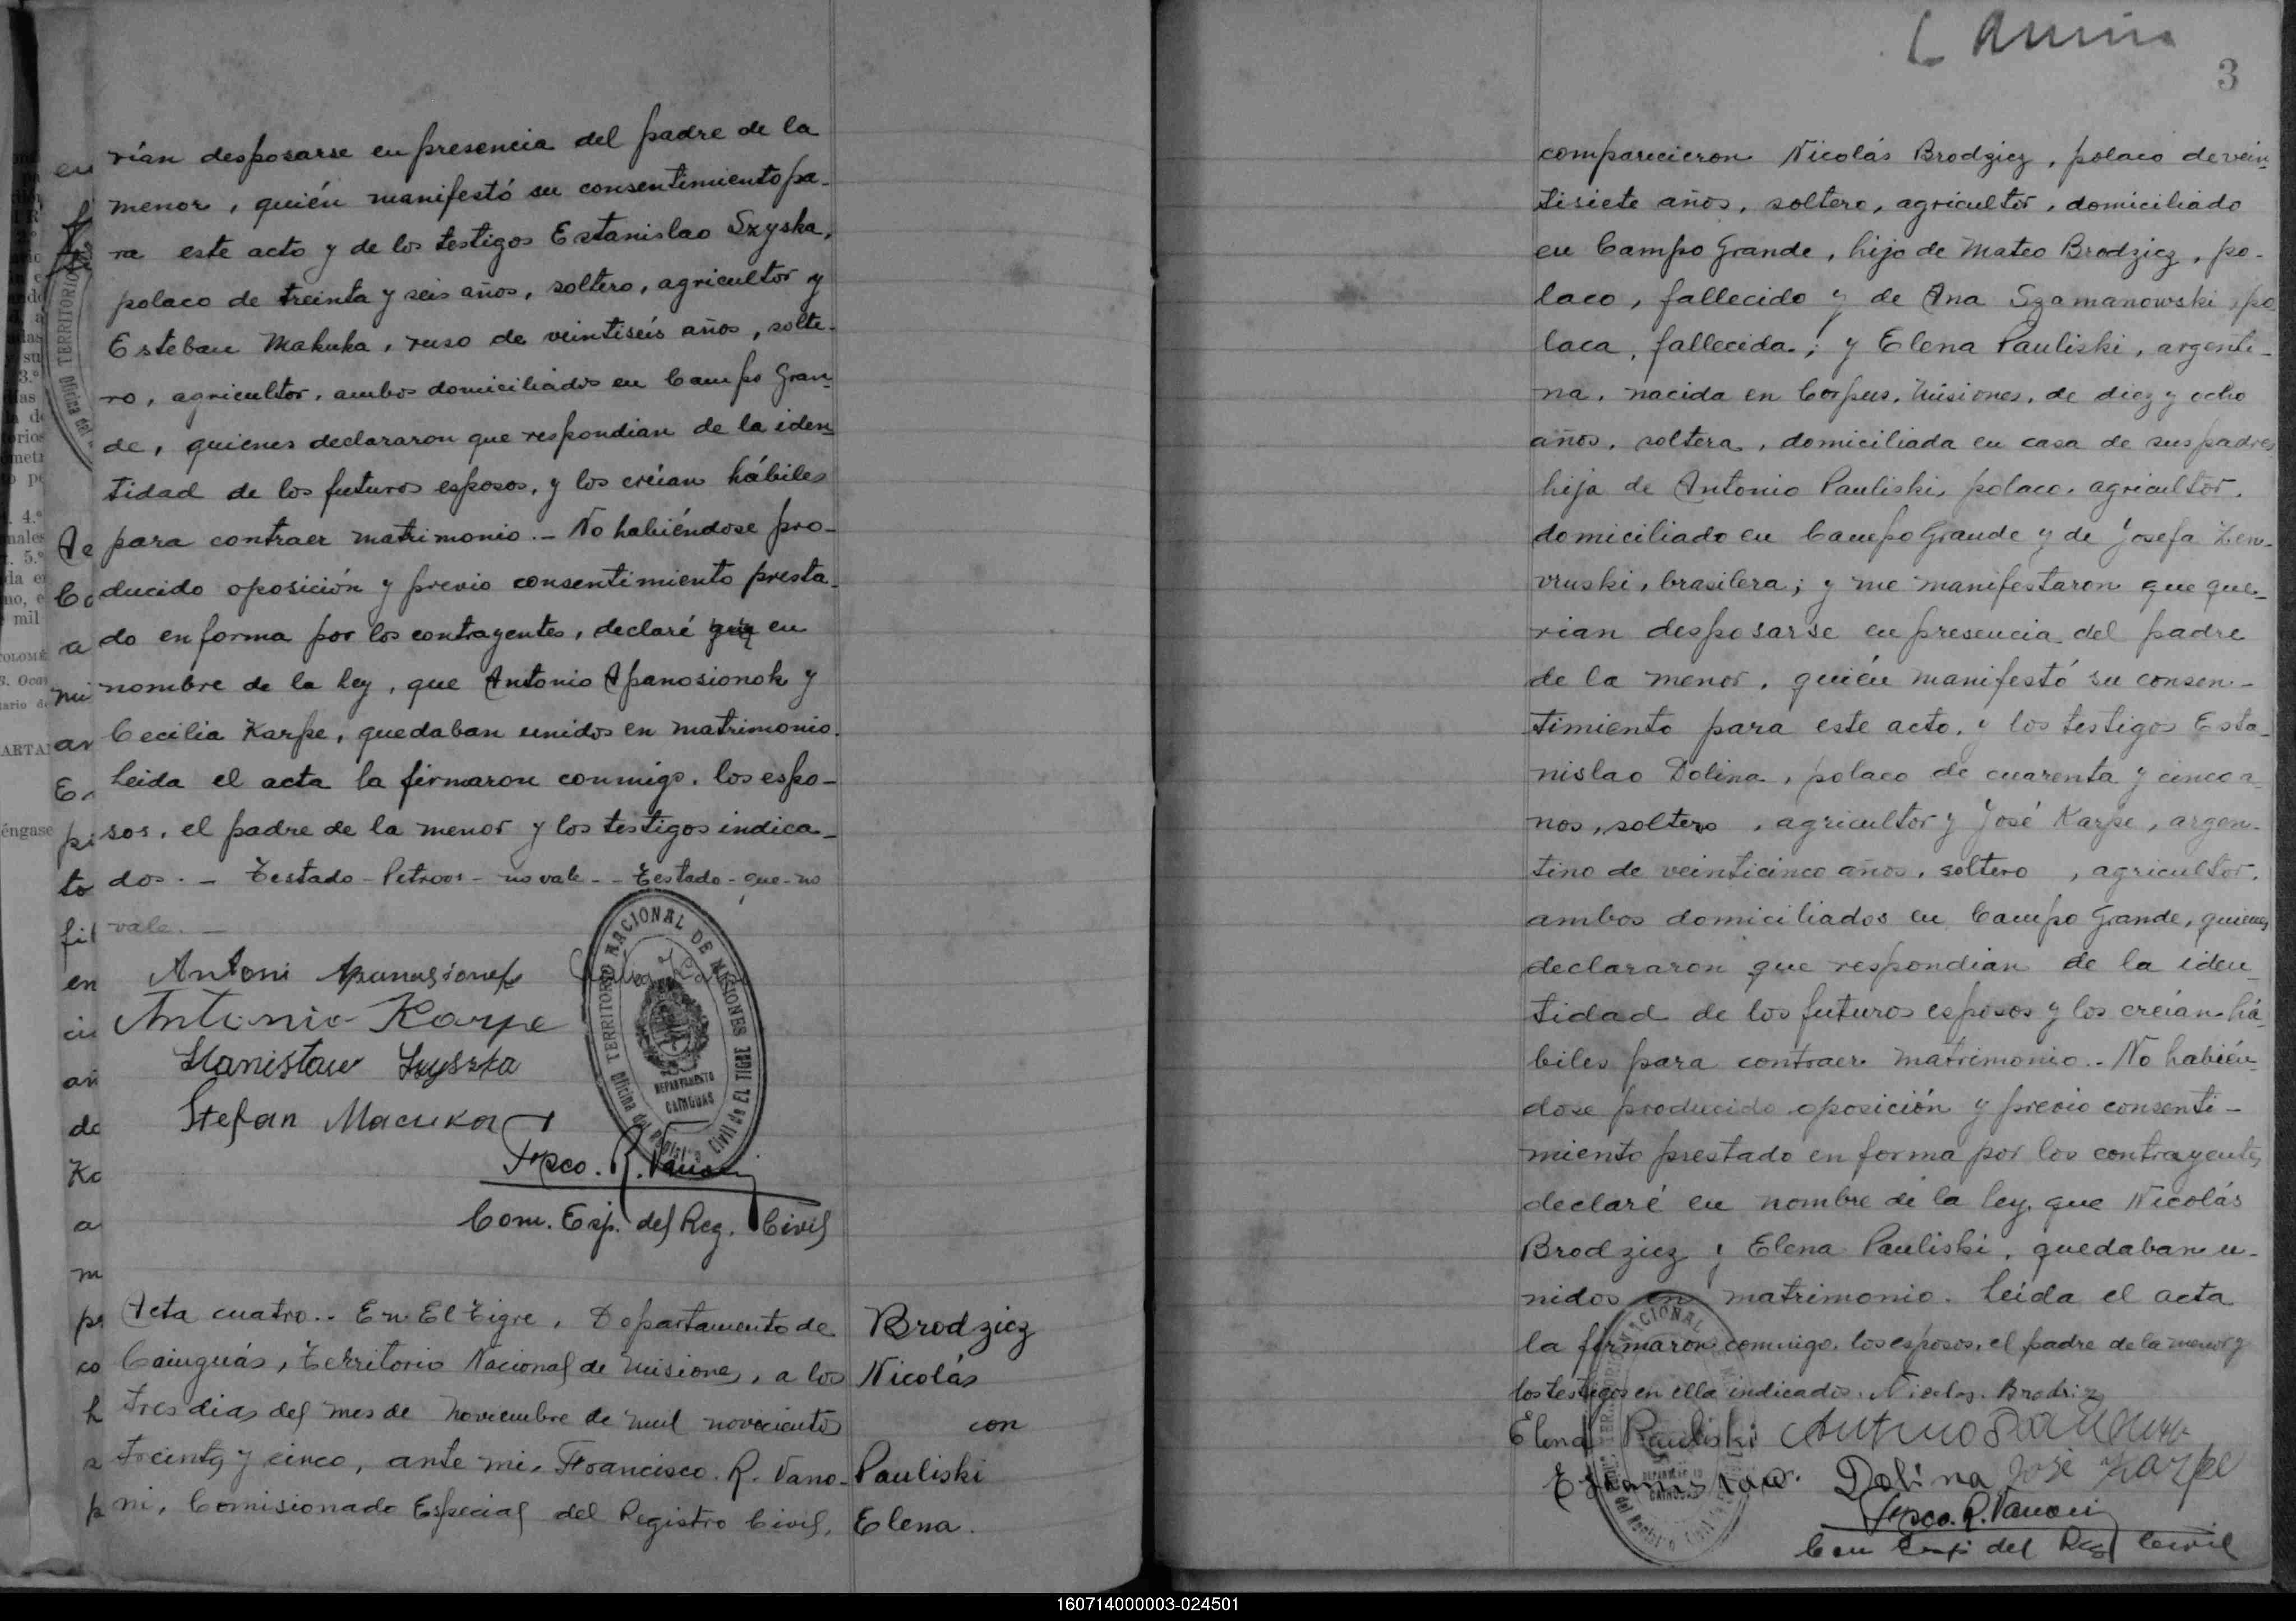 rían desposarse en presencia del padre de la
menor, quién manifestó su consentimiento pa-
ra este acto y de los testigos Estanislao Szyska,
polaco de treinta y seis años, soltero, agricultor y
Esteban Makuka, ruso de veintiseís años, solte-
ro, agricultor, ambos domiciliados en Campo Gran-
de, quienes declararon que respondian de la iden-
tidad de los futuros esposos, y los creían hábiles
para contraer matrimonio.- No habiéndose pro-
ducido oposición y previo consentimiento presta-
do en forma por los contrayentes, declaré que en
nombre de la ley, que Antonio Apanosionok y
Cecilia Karpe, quedaban unidos en matrimonio.
Leida el acta la firmaron conmigo, los espo-
sos, el padre de la menor y los testigos indica-
dos.- Testado - Petroos - no vale -- Testado - que - no
vale.-
Antoni
Antonio Karpe
Stanisław Szyszka
Stefan Macuka
TERRITORIO NACIONAL DE MISIONES
Oficina del Registro Civil de EL TIGRE
DEPARTAMENTO
CAINGUAS
Frsco. R. Vanoni
Com. Esp. del Reg. Civil
Acta cuatro.- En El Tigre, Departamento de
Cainguás, Territorio Nacional de Misiones, a los
tres dias del mes de Noviembre de mil novecientos
treinta y cinco, ante mi, Francisco R. Vano-
ni, Comisionado Especial del Registro Civil,
Brodzicz
Nicolás
con
Pauliski
Elena.
3
comparecieron Nicolás Brodzicz, polaco de vein-
tisiete años, soltero, agricultor, domiciliado
en Campo Grande, hijo de Mateo Brodzicz, po-
laco, fallecido y de Ana Szamanowski, po-
laca, fallecida; y Elena Pauliski, argenti-
na, nacida en Corpus, Misiones, de diez y ocho
años, soltera, domiciliada en casa de sus padres
hija de Antonio Pauliski, polaco, agricultor,
domiciliado en Campo Grande y de Josefa Zew-
vruski, brasilera; y me manifestaron que que-
rian desposarse en presencia del padre
de la menor, quién manifestó su consen-
timiento para este acto, y los testigos Esta-
nislao Dolina, polaco de cuarenta y cinco a-
nos, soltero, agricultor y José Karpe, argen-
tino de veinticinco años, soltero, agricultor,
ambos domiciliados en Campo Grande, quienes
declararon que respondian de la iden-
tidad de los futuros esposos y los creían há-
biles para contraer matrimonio.- No habién-
dose producido oposición y previo consenti-
miento prestado en forma por los contrayentes,
declaré en nombre de la ley, que Nicolás
Brodzicz y Elena Pauliski, quedaban u-
nidos en matrimonio. Leída el acta
la firmaron conmigo, los esposos, el padre de la menor y
los testigos en ella indicados. Nicolas Brodzicz
Elena Pauliski Antonio
Estanislao Dolina José Karpe
Frsco. R. Vanoni
Com Esp. del Reg Civil
160714000003-024501